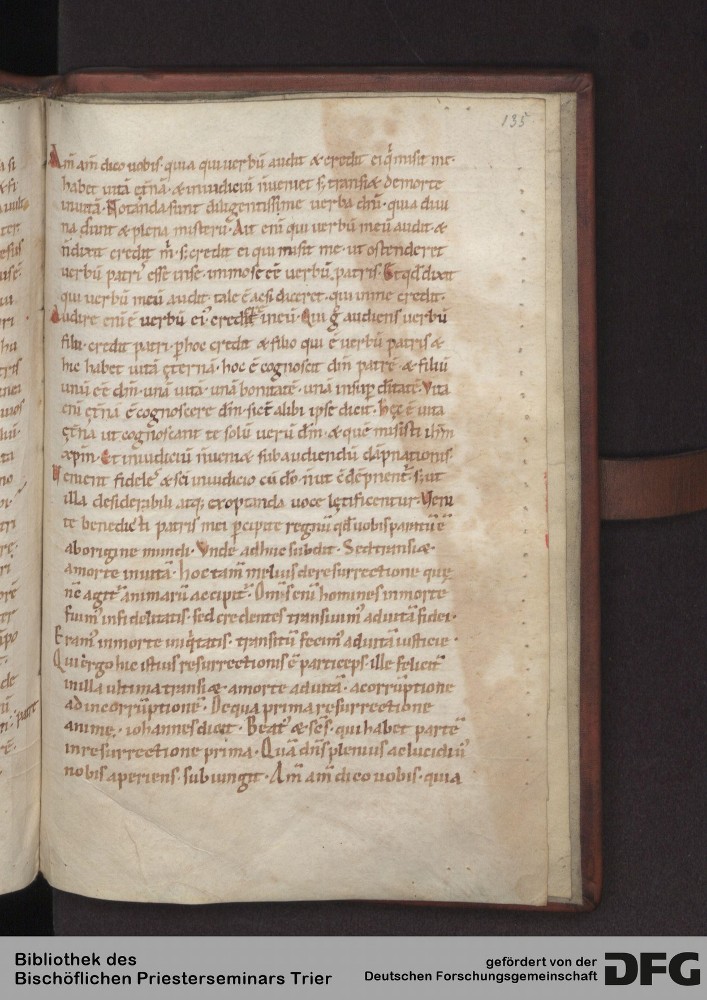 135
Am̄ am̄ dico uobis· quia qui uerbū audit & credit ei q̇ misit me·
habet uitā ęt̄nā· & in iudiciū n̄ ueniet s; transi& de morte
in uitā· Notanda sunt diligentissime uerba dn̄i· quia diui
na sunt & plena misterii· Ait eni qui uerbū meū audit &
n̄ dixit credit m̄· s; credit ei qui misit me· ut ostenderet
uerbū patri' esse in se· immo se eē uerbū patris· Et qđ dixit
qui uerbū meū audit· tale ē ac si diceret· qui in me credit·
Audire eni ē uerbū ei' credere in eū· Qui g̊ audiens uerbū
filii· credit patri· p hoc credit & filio qui ē uerbū patris &
hic habet uitā ęternā· hoc ē cognoscit dm̄ patrē & filiū
unū eē dm̄· unā uitā· unā bonitatē· unā insup dītatē· Vita
eni ęt̄na ē cognoscere dm̄· sic̄ alibi ipse dicit· hęc ē uita
ęt̄na ut cognoscant te solū uerū dm̄· & quē misisti ih̄m
xp̄m· Et in iudiciū n̄ ueni& sub audiendū dāpnationis·
Venient fideles & sc̄i in iudicio cū dō· n̄ ut 9dēpnent̄· s; ut
illa desiderabili atq; exoptanda uoce lętificentur· Veni
te benedicti patris mei p̄cipite regnū qđ uobis paratū ē
ab origine mundi· Vnde adhuc subdit· Sed transi&
a morte in uitā· hoc tam̄ melius de resurrectione quę
nc̄ agit̄ animarū accipit̄· Om̄s eni homines in morte
fuim' infidelitatis· sed credentes transiuim' ad uitā fidei·
Eram' in morte iniq̇tatis· transitū fecim' ad uitā iusticie·
Qui ergo hic istius resurrectionis ē particeps· ille felicit̄
in illa ultima transi& a morte ad uitā· a corrūptione
ad incorrūptionē· De qua prima resurrectione
anime· iohannes dicit· Beat' & sc̄s· qui habet partē
in resurrectione prima· Quā dn̄s plenius ac lucidiū'
nobis aperiens· subiungit· Am̄ am̄ dico uobis· quia
Bibliothek des
Bischöflichen Priesterseminars Trier
gefördert von der
Deutschen Forschungsgemeinschaft
DFG